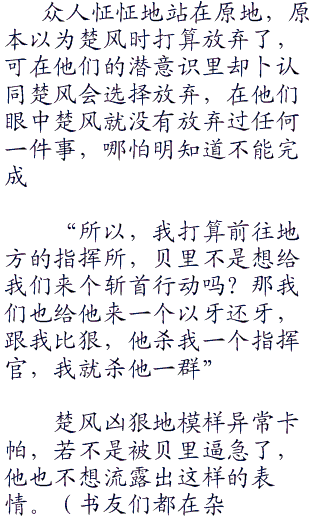 众人怔怔地站在原地，原
本以为楚风时打算放弃了，
可在他们的潜意识里却卜认
同楚风会选择放弃，在他们
眼中楚风就没有放弃过任何
一件事，哪怕明知道不能完
成
“所以，我打算前往地
方的指挥所，贝里不是想给
我们来个斩首行动吗？那我
们也给他来一个以牙还牙，
跟我比狠，他杀我一个指挥
官，我就杀他一群”
楚风凶狠地模样异常卡
帕，若不是被贝里逼急了，
他也不想流露出这样的表
情。（书友们都在杂